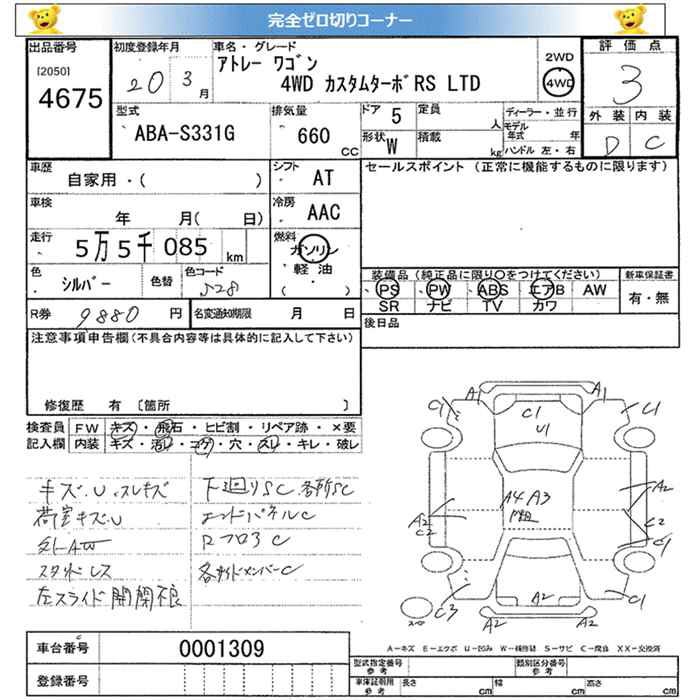 完全ゼロ切りコーナー
出品番号
[2050]
4675
初度登録年月
20 3月
車名・グレード
アトレー ワゴン
4WD カスタムターボRS LTD
2WD
4WD
評価点
3
外装 内装
D C
型式
ABA-S331G
排気量
660
CC
ドア 5
定員
人
形状 W
積載
kg
ディーラー・並行
モデル年式 年
ハンドル 左・右
車歴
自家用・( )
シフト
AT
セールスポイント (正常に機能するものに限ります)
車検
年 月( 日)
冷房
AAC
走行
5万5千085 km
燃料
ガソリン
軽油
( ・ )
色
シルバー
色替
色コード
S28
装備品(純正品に限り○をつけてください)
PS PW ABS エアB AW
SR ナビ TV カワ
新車保証書
有・無
R券 9880 円
名変通知期限 月 日
後日品
注意事項申告欄(不具合内容等は具体的に記入して下さい)
修復歴 有 〔箇所 〕
検査員記入欄
FW キズ・飛石・ヒビ割・リペア跡・×要
内装 キズ・汚レ・コゲ・穴・スレ・キレ・破レ
キズ.U.スレキズ
荷室キズ.U
外AW
スタッドレス
左スライド開閉不良
下廻りSC.各所SC
エンドパネルC
Rフロア C
各サイドメンバーC
A1
A1
C1
C1
C1
U1
A4 A3
A2
C2
A2
C2
C1
C3
A2
C1
A2
A2
A-キズ E-エクボ U-凹み W-補修跡 S-サビ C-腐食 XX-交換済
車台番号
0001309
登録番号
型式指定番号 参考
類別区分番号 参考
車庫証明用 参考
長さ cm
幅 cm
高さ cm